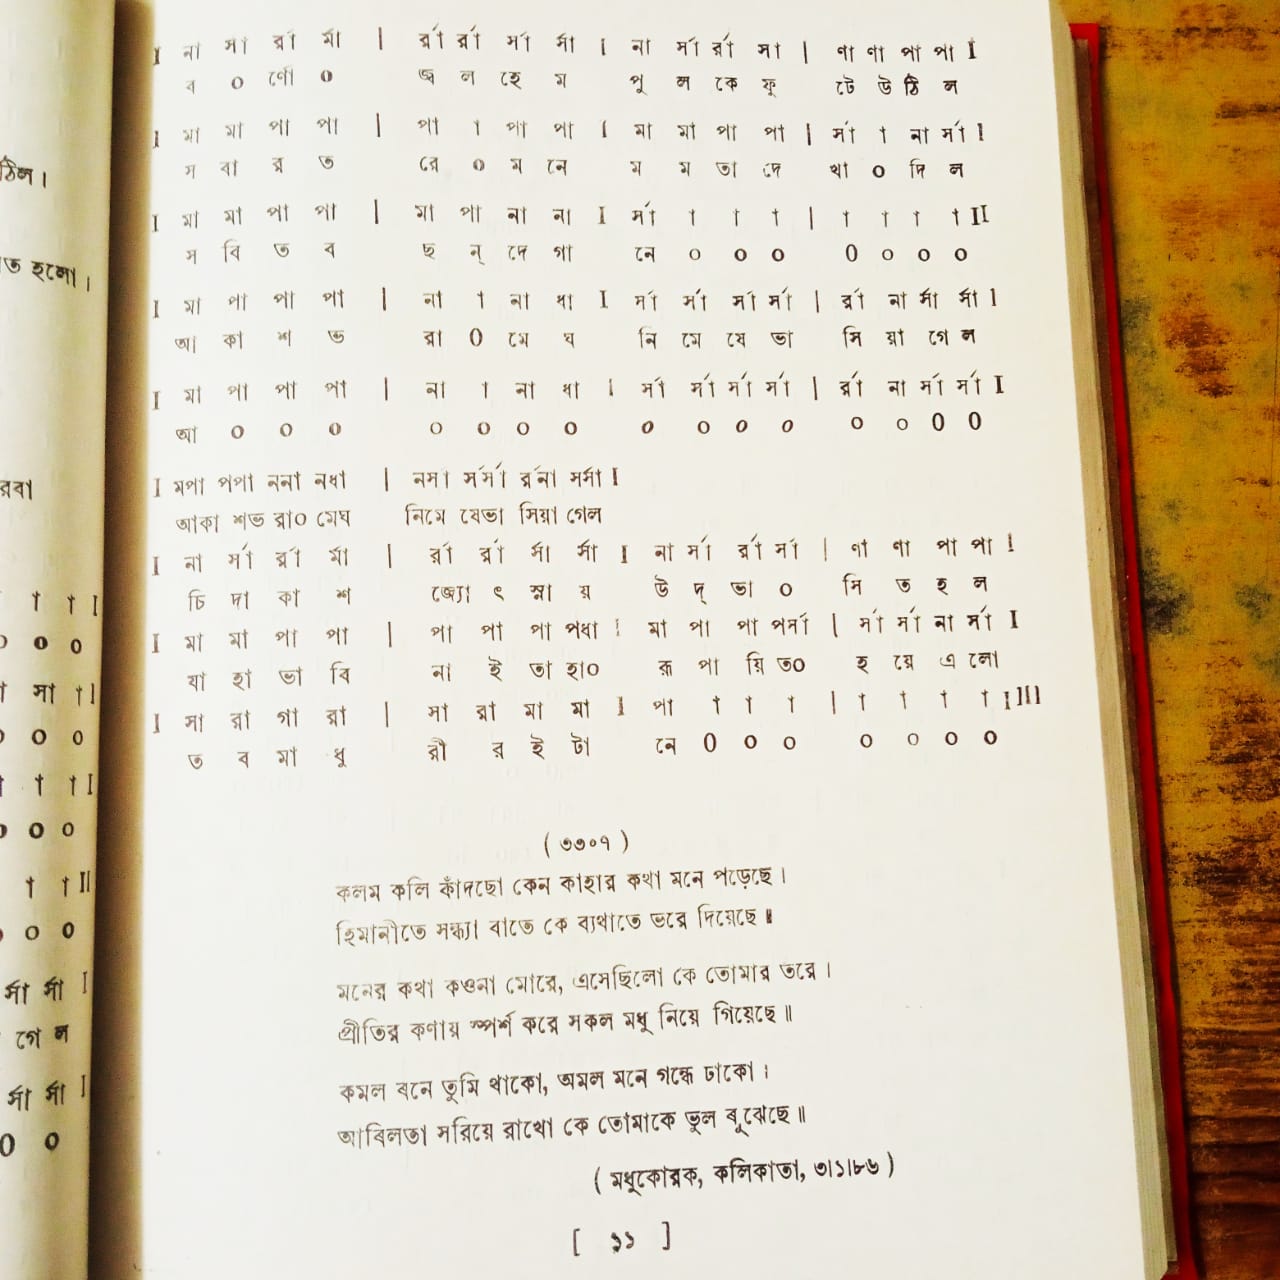 I না র্সা র্রা র্মা | র্রা র্রা র্সা র্সা I না র্সা র্রা র্সা | ণা ণা পা পা I
ব ০ র্ণে ০ জ্ব ল হে ম পু ল কে ফু টে উ ঠি ল
I মা মা পা পা | পা া পা পা I মা মা পা পা | র্সা া না র্সা I
স বা র ত রে ০ ম নে ম ম তা দে খা ০ দি ল
I মা মা পা পা | মা পা না না I র্সা া া া | া া া া II
স বি ত ব ছ ন্ দে গা নে ০ ০ ০ ০ ০ ০ ০
I মা পা পা পা | না া না ধা I র্সা র্সা র্সা র্সা | র্রা না র্সা র্সা I
আ কা শ ভ রা ০ মে ঘ নি মে ষে ভা সি য়া গে ল
I মা পা পা পা | না া না ধা I র্সা র্সা র্সা র্সা | র্রা না র্সা র্সা I
আ ০ ০ ০ ০ ০ ০ ০ ০ ০ ০ ০ ০ ০ ০ ০
I মপা পপা ননা নধা | নর্সা র্সর্সা র্রনা র্সর্সা I
আকা শভ রা০ মেঘ নিমে ষেভা সিয়া গেল
I না র্সা র্রা র্মা | র্রা র্রা র্সা র্সা I না র্সা র্রা র্সা | ণা ণা পা পা I
চি দা কা শ জ্যো ৎ স্না য় উ দ্ ভা ০ সি ত হ ল
I মা মা পা পা | পা পা পা পধা I মা পা পা পর্সা | র্সা র্সা না র্সা I
যা হা ভা বি না ই তা হা০ রূ পা য়ি ত০ হ য়ে এ লো
I সা রা গা রা | সা রা মা মা I পা া া া | া া া া I III
ত ব মা ধু রী র ই টা নে ০ ০ ০ ০ ০ ০ ০
( ৩৩০৭ )
কলম কলি কাঁদছো কেন কাহার কথা মনে পড়েছে।
হিমানীতে সন্ধ্যা রাতে কে ব্যথাতে ভরে দিয়েছে॥
মনের কথা কওনা মোরে, এসেছিলো কে তোমার তরে।
প্রীতির কণায় স্পর্শ করে সকল মধু নিয়ে গিয়েছে॥
কমল বনে তুমি থাকো, অমল মনে গন্ধে ঢাকো।
আবিলতা সরিয়ে রাখো কে তোমাকে ভুল বুঝেছে॥
( মধুকোরক, কলিকাতা, ৩।১।৮৬ )
[ ১১ ]
ঠিল।
ত হলো।
রবা
া া I
০ ০ ০
সা া I
০ ০ ০
া া I
০ ০ ০
া া II
০ ০ ০
র্সা র্সা I
গে ল
র্সা র্সা I
০ ০